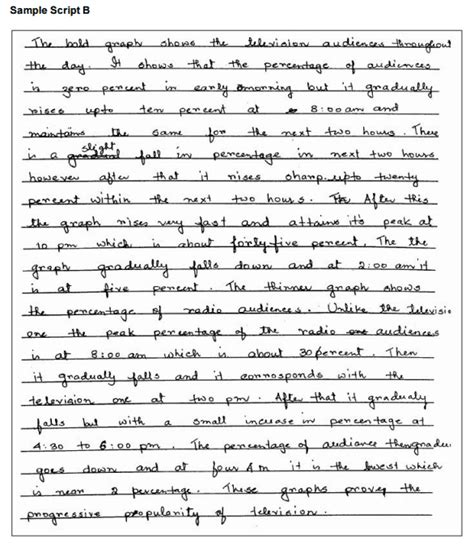 Sample Script B
The bold graph shows the television audiences throughout
the day. It shows that the percentage of audiences
is zero percent in early morning but it gradually
rises upto ten percent at 8:00 am and
maintains the same for the next two hours. There
is a slight fall in percentage in next two hours
however after that it rises sharp upto twenty
percent within the next two hours. After this
the graph rises very fast and attains it's peak at
10 pm which is about forty-five percent. The the
graph gradually falls down and at 2:00 am it
is at five percent. The thinner graph shows
the percentage of radio audiences. Unlike the televisio
one the peak percentage of the radio audiences
is at 8:00 am which is about 30 percent. Then
it gradually falls and it corrosponds with the
television one at two pm. After that it gradualy
falls but with a small increase in percentage at
4:30 to 6:00 pm. The percentage of audiance
goes down and at four Am it is the lowest which
is near 2 percentage. These graphs proves the
progressive popularity of television.